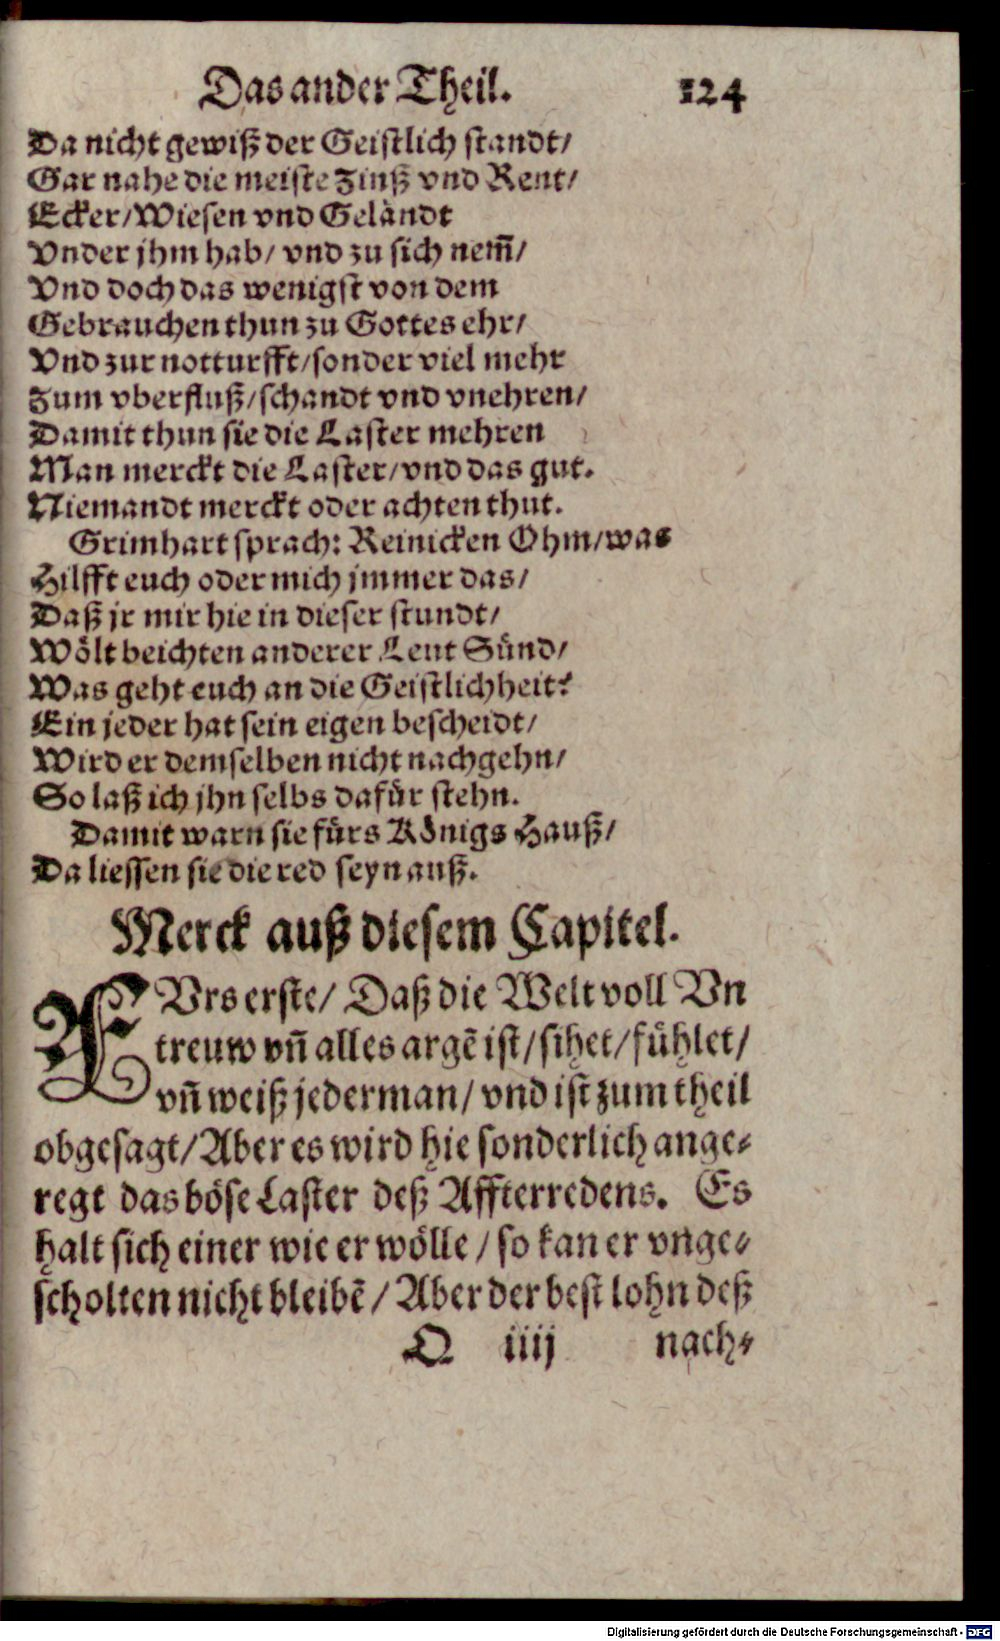 Das ander Theil. 124
Da nicht gewiß der Geistlich standt/
Gar nahe die meiste Zinß vnd Rent/
Ecker/Wiesen vnd Geländt
Vnder jhm hab/ vnd zu sich nem̃/
Vnd doch das wenigst von dem
Gebrauchen thun zu Gottes ehr/
Vnd zur notturfft/sonder viel mehr
Zum vberfluß/schandt vnd vnehren/
Damit thun sie die Laster mehren
Man merckt die Laster/vnd das gut.
Niemandt merckt oder achten thut.
Grimhart sprach: Reinicken Ohm/was
Hilfft euch oder mich jmmer das/
Daß jr mir hie in dieser stundt/
Wölt beichten anderer Leut Sünd/
Was geht euch an die Geistlichheit?
Ein jeder hat sein eigen bescheidt/
Wird er demselben nicht nachgehn/
So laß ich jhn selbs dafür stehn.
Damit warn sie fürs Königs Hauß/
Da liessen sie die red seyn auß.
Merck auß diesem Capitel.
FVrs erste/ Daß die Welt voll Vn
treuw vñ alles argẽ ist/sihet/fühlet/
vñ weiß jederman/ vnd ist zum theil
obgesagt/Aber es wird hie sonderlich ange⸗
regt das böse Laster deß Affterredens. Es
halt sich einer wie er wölle/so kan er vnge⸗
scholten nicht bleibẽ/Aber der best lohn deß
Q iiij nach⸗
Digitalisierung gefördert durch die Deutsche Forschungsgemeinschaft - DFG